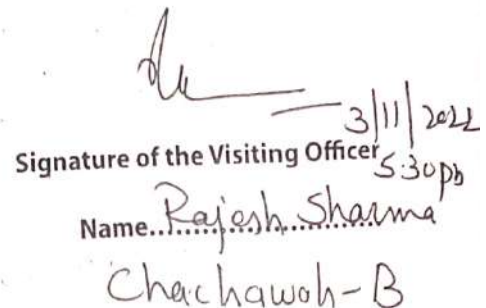 3/11/2022
Signature of the Visiting Officer
5:30pm
Name..Rajesh Sharma
Chachawah-B